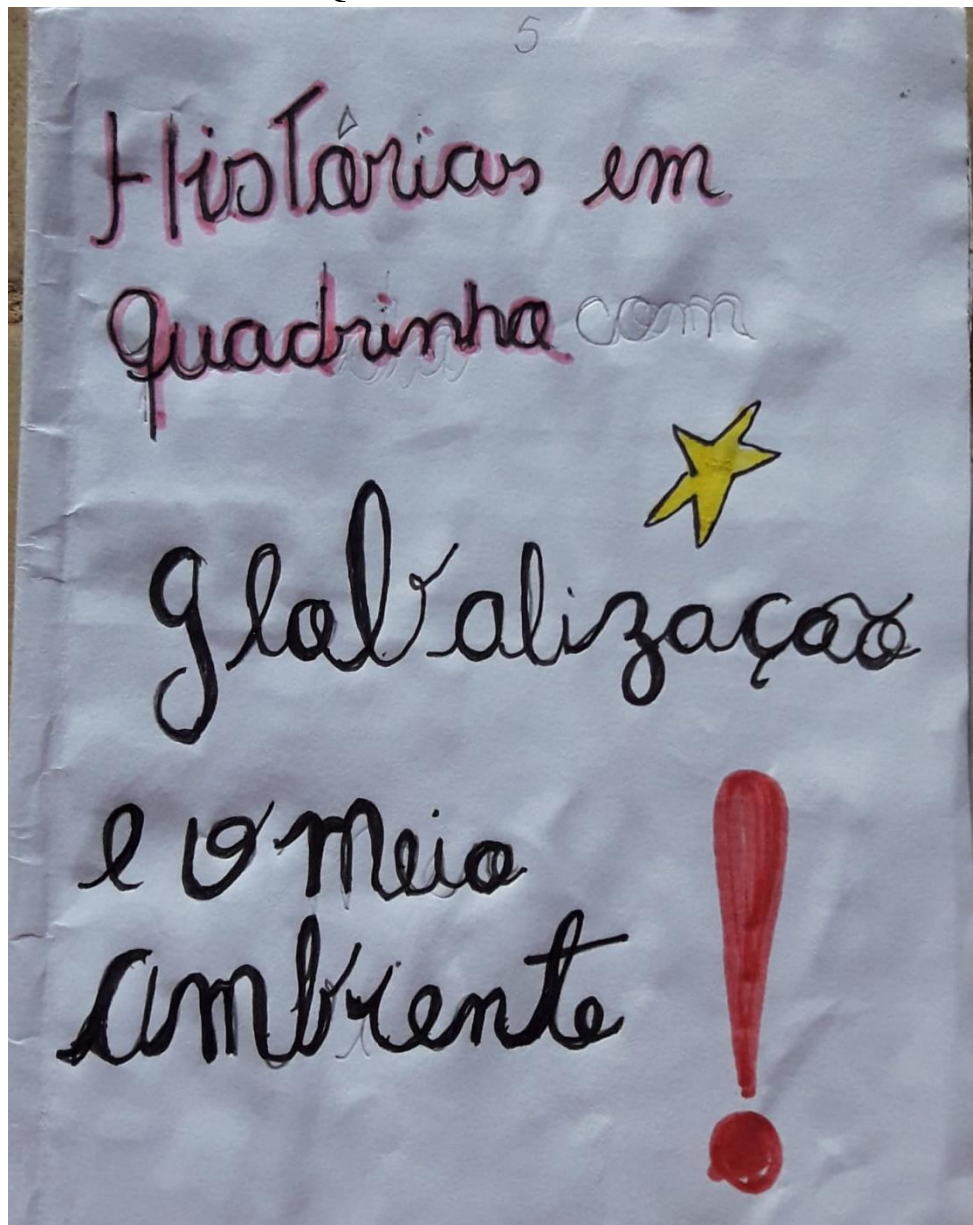 5
Histórias em
quadrinho com
globalização
e o meio
ambiente!